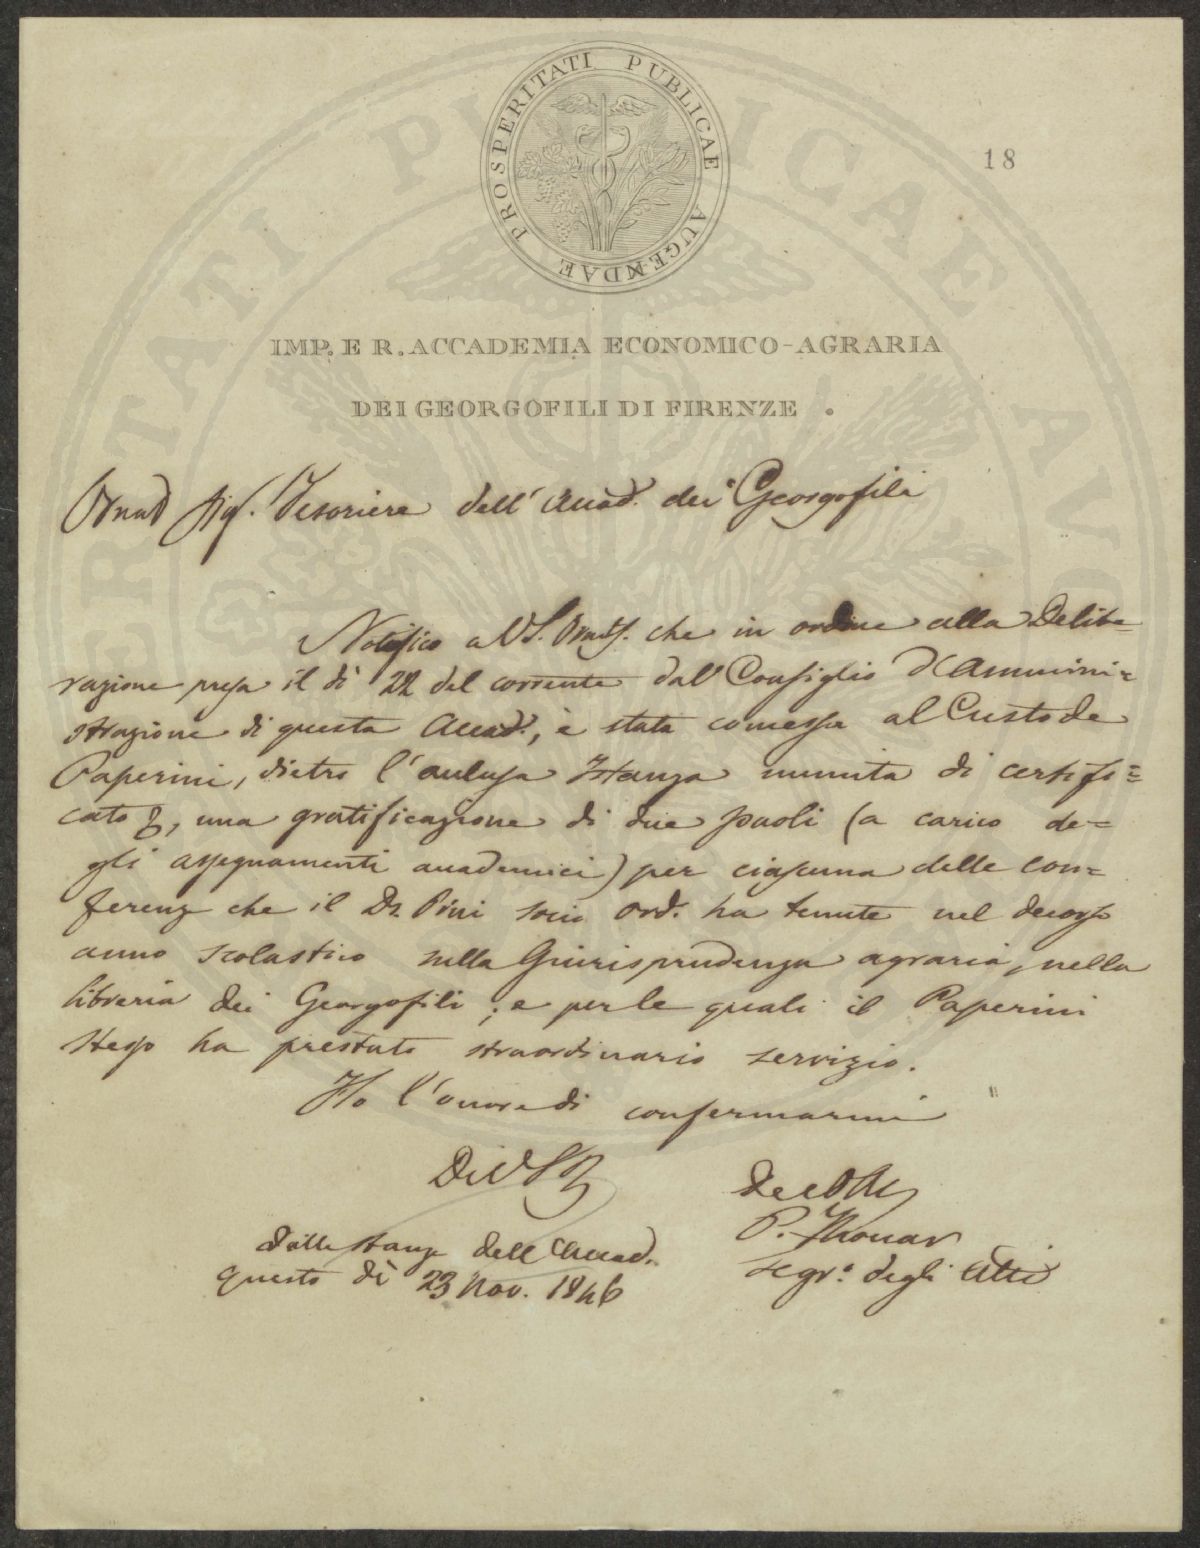 PROSPERITATI PUBLICAE AUGENDAE
18
IMP. E R. ACCADEMIA ECONOMICO-AGRARIA
DEI GEORGOFILI DI FIRENZE.
Sig. Tesoriere dell'Accad. dei Georgofili
Notifico a VS. che in ordine alla Delibe-
razione presa il dì 22 del corrente dal Consiglio d'Ammini=
strazione di questa Accad., è stata comessa al Custode
Paperini, dietro l'anclusa Istanza munita di certifi=
cato, una gratificazione di due paoli (a carico de=
gli assegnamenti accademici) per ciascuna delle con=
ferenz che il Dr. Pini socio ord. ha tenute nel decorso
anno scolastico sulla Giurisprudenza agraria, nella
libreria dei Georgofili; e per le quali il Paperini
stesso ha prestato straordinario servizio.
Ho l'onore di confermarmi
Di VS
P. Thouar
Segr.o degli Atti
Dalle stanze dell'Accad.
questo dì 23 Nov. 1846